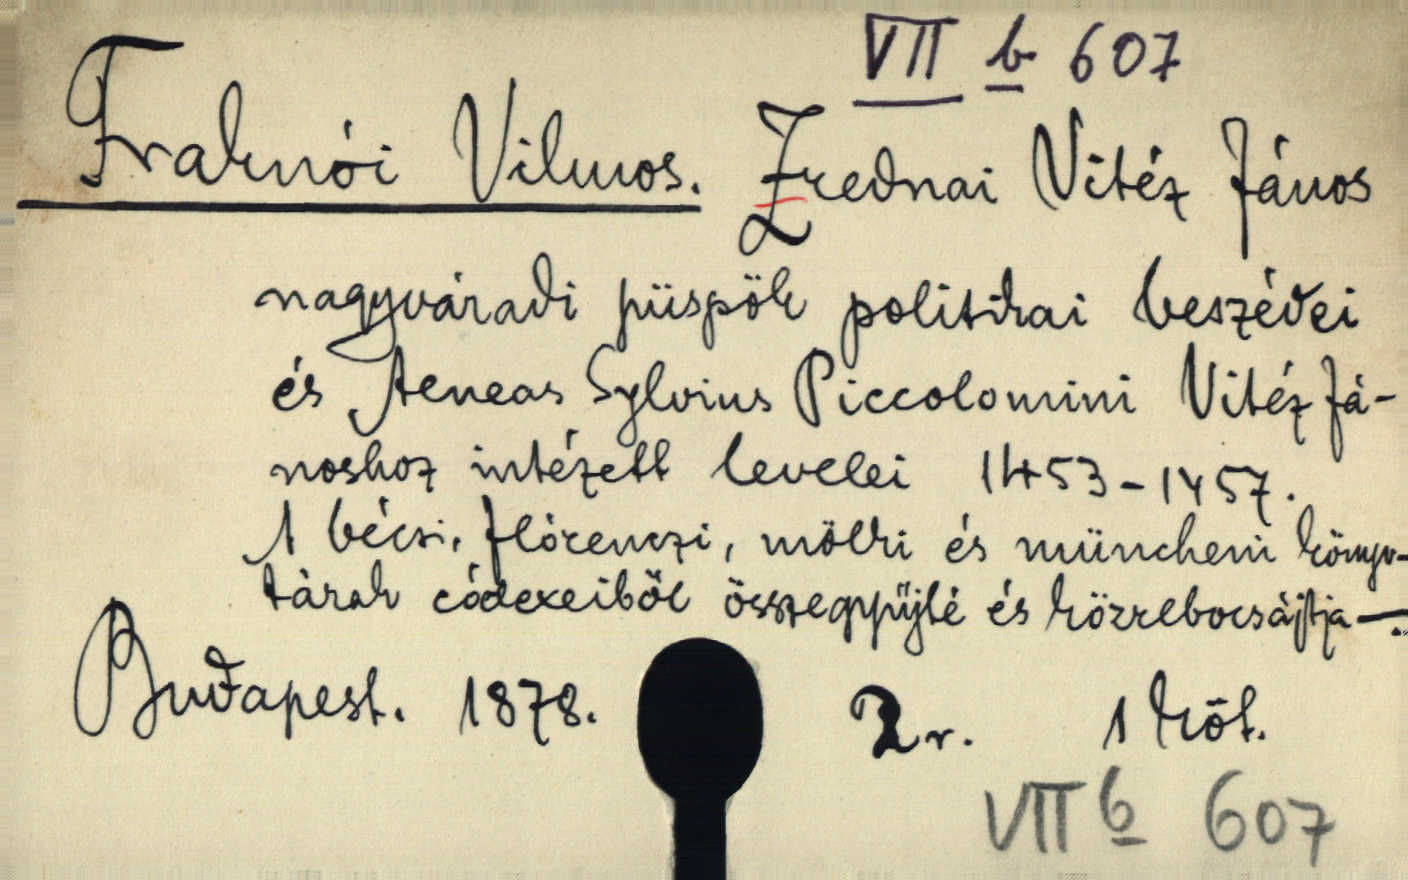 VII b 607
Fraknói Vilmos. Zrednai Vitéz János
nagyváradi püspök politikai beszédei
és Aeneas Sylvius Piccolomini Vitéz Já-
noshoz intézett levelei 1453-1457.
A bécsi, flórenczi, mölki és müncheni könyv-
tárak códexeiből összegyűjté és közrebocsájtja—
Budapest. 1878. 2r. 1 köt.
VII b 607